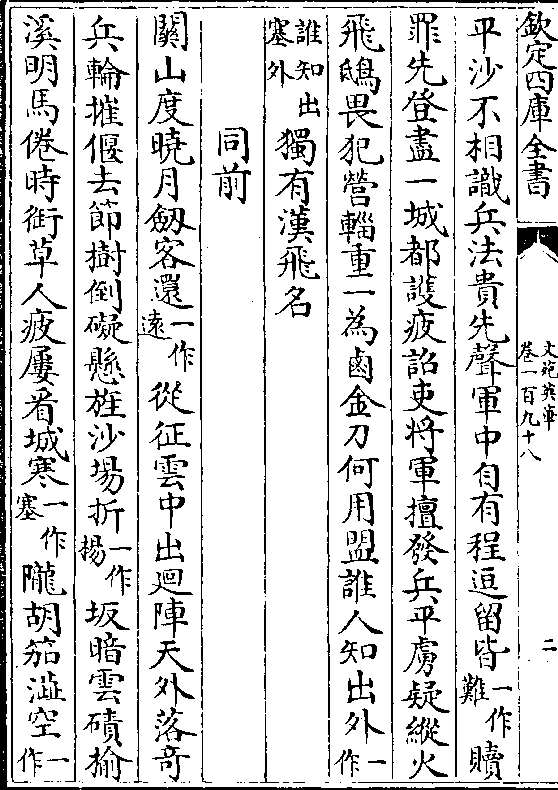 欽定四庫全書
文苑英華
卷一百九十八
二
平沙不相識兵法貴先聲軍中自有程逗留皆一作難贖
罪先登盡一城都護疲詔吏將軍擅發兵平虜疑縱火
飛鴟畏犯營輜重一為鹵金刀何用盟誰人知出外一作
誰知出塞外獨有漢飛名
同前
關山度曉月劔客還一作遠從征雲中出迴陣天外落竒
兵輪摧偃去節樹倒礙懸旌沙塲折一作揚坂暗雲磧榆
溪明馬倦時銜草人疲屢看城寒一作塞隴胡笳澁空一作